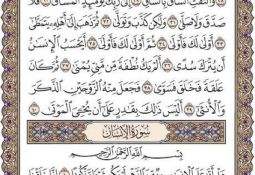 وَالْتَفَّتِ السَّاقُ بِالسَّاقِ ٢٩ إِلَىٰ رَبِّكَ يَوْمَئِذٍ الْمَسَاقُ ٣٠ فَلَا
صَدَّقَ وَلَا صَلَّىٰ ٣١ وَلَٰكِن كَذَّبَ وَتَوَلَّىٰ ٣٢ ثُمَّ ذَهَبَ إِلَىٰ أَهْلِهِ يَتَمَطَّىٰ
٣٣ أَوْلَىٰ لَكَ فَأَوْلَىٰ ٣٤ ثُمَّ أَوْلَىٰ لَكَ فَأَوْلَىٰ ٣٥ أَيَحْسَبُ الْإِنسَانُ
أَن يُتْرَكَ سُدًى ٣٦ أَلَمْ يَكُ نُطْفَةً مِّن مَّنِيٍّ يُمْنَىٰ ٣٧ ثُمَّ كَانَ
عَلَقَةً فَخَلَقَ فَسَوَّىٰ ٣٨ فَجَعَلَ مِنْهُ الزَّوْجَيْنِ الذَّكَرَ
وَالْأُنثَىٰ ٣٩ أَلَيْسَ ذَٰلِكَ بِقَادِرٍ عَلَىٰ أَن يُحْيِيَ الْمَوْتَىٰ ٤٠
سُورَةُ الْإِنسَانِ
بِسْمِ اللَّهِ الرَّحْمَٰنِ الرَّحِيمِ